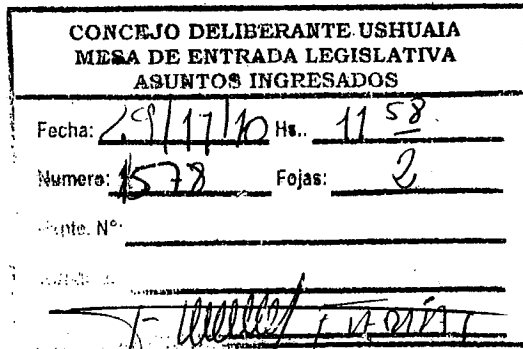 CONCEJO DELIBERANTE USHUAIA
MESA DE ENTRADA LEGISLATIVA
ASUNTOS INGRESADOS
Fecha: 29/11/10 Hs.. 11 58
Numero: 1578 Fojas: 2
Expte. Nº